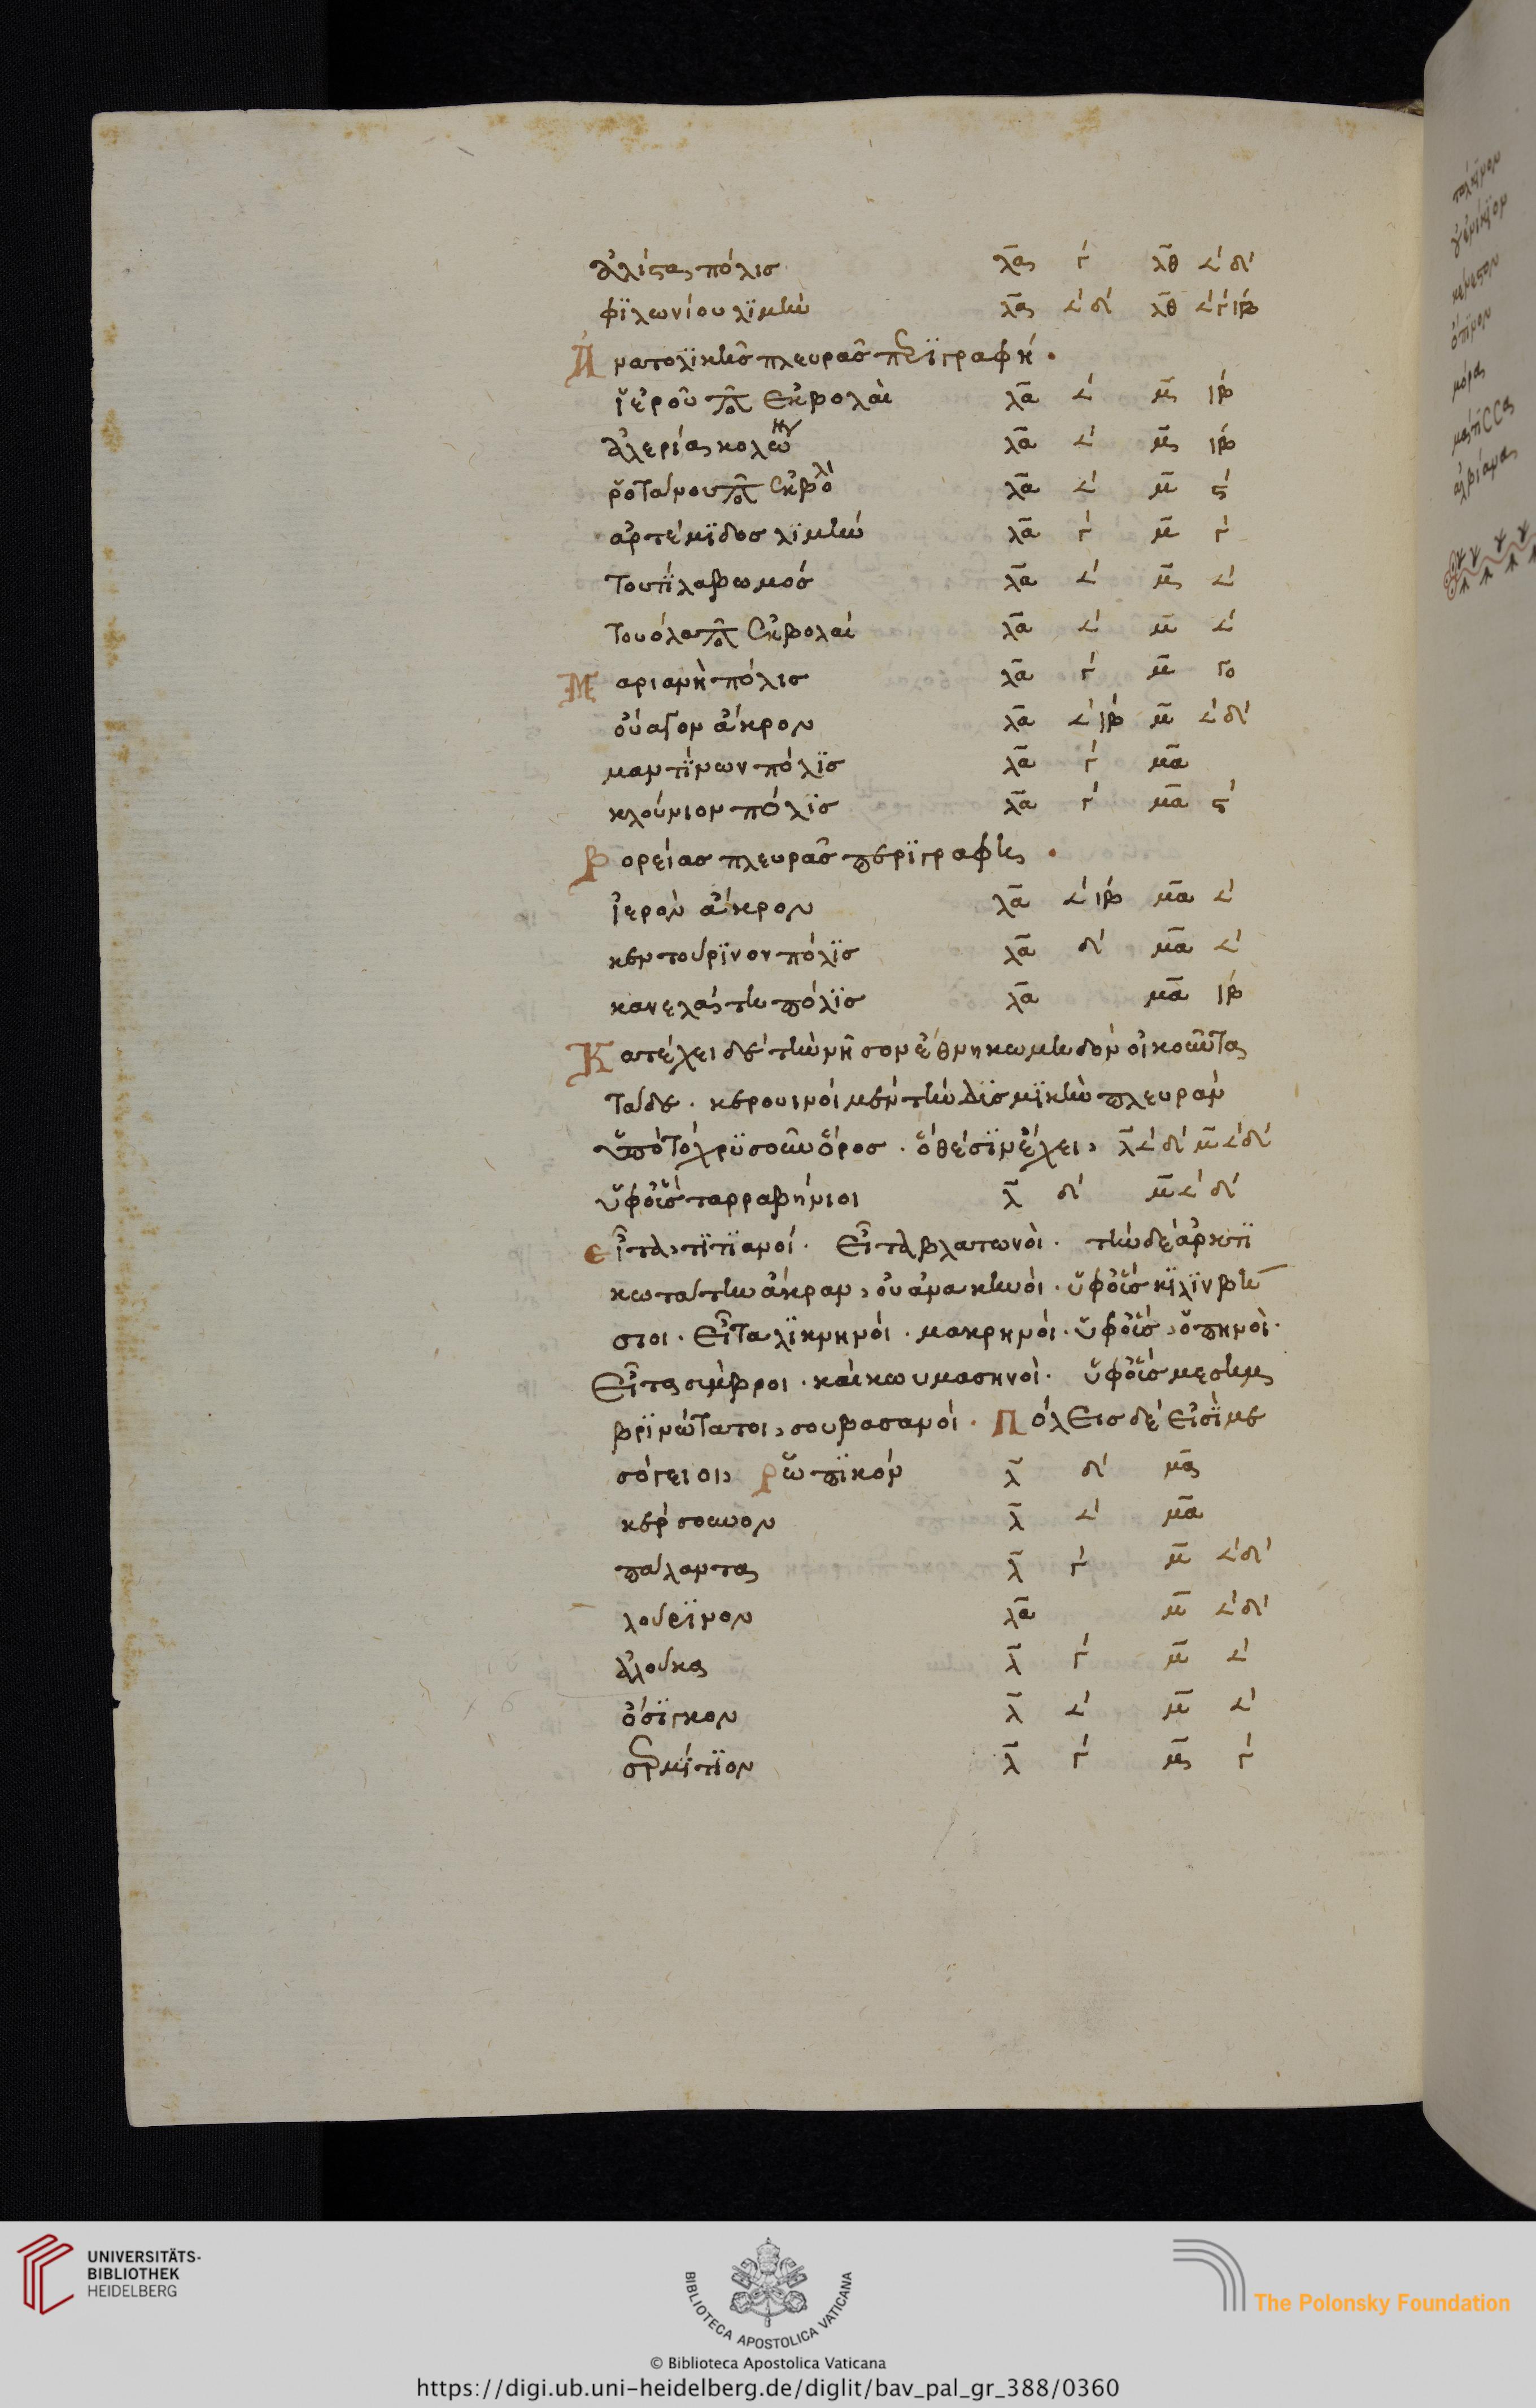 ἀλίςας πόλισ λ̅ας γ' λ̅θ ∠' δ'
φϊλωνίου λϊμὴν λ̅ας ∠' δ' λ̅θ ∠' γ' ιβ
Ἀνατολϊκῆσ πλευρᾶσ περϊγραφή.
ἱεροῦ πο ἐκβολαὶ λ̅α ∠' μ̅ ιβ
ἀλερίας κολων λ̅α ∠' μ̅ς ιβ
ῥοτάνου πο ἐκβολ λ̅α ∠' μ̅ ς'
ἀρτέμϊδοσ λϊμὴν λ̅α γ' μ̅ γ'
τουτίλα βωμόσ λ̅α ∠' μ̅ς ∠'
τουόλα πο ἐκβολαί λ̅α ∠' μ̅ ∠'
Μαριανὴ πόλισ λ̅α γ' μ̅ γο
οὐάγον ἄκρον λ̅α ∠' ιβ μ̅ ∠' δ'
μαντϊνων πόλϊσ λ̅α γ' μ̅α
κλούνιον πόλϊσ λ̅α γ' μ̅α ς'
Βορείασ πλευρᾶσ περϊγραφὴ.
ἱερὸν ἄκρον λ̅α ∠' ιβ μ̅α ∠'
κεντούρϊνον πόλϊσ λ̅α δ' μ̅α ∠'
κανελάτη πόλϊσ λ̅α μ̅α ιβ
Κατέχει δὲ τὴν νῆσον ἔθνη κωμηδὸν οἰκοῦντα
τάδε. κερουινοί μὲν τὴν δϊσμϊκὴν πλευρὰν
ὑπὸ τὸ χρϋσοῦν ὄροσ. ὃ θέσϊν ἔχει λ̅ ∠' δ' μ̅ ∠' δ'
ὑφ' οἷσ ταρραβήνιοι λ̅ δ' μ̅ ∠' δ'
εἶτα τϊτϊανοί. εἶτα βλατωνοὶ. τὴν δὲ ἀρκτϊ
κωτάτην ἄκραν οὐανακηνοὶ. ὑφ' οἷσ κϊλϊνβή
σιοι. εἶτα λϊκνηνοί. μακρηνοί. ὑφ' οἷσ ὀπηνοὶ.
εἶτα σύμβροι. καὶ κουμασηνοὶ. ὑφ' οἷσ μεσημ
βρϊνώτατοι σουβασανοί. Πόλεισ δέ εἰσϊ με
σόγειοι ῥώπϊκόν λ̅ δ' μ̅ας
κέρσουνον λ̅ ∠' μ̅α
πάλαντα λ̅ γ' μ̅ ∠' δ'
λούρϊνον λ̅α μ̅ ∠' δ'
ἀλούκα λ̅ γ' μ̅ ∠'
ὀσϊγκον λ̅ ∠' μ̅ ∠'
σερμίτϊον λ̅ γ' μ̅ς γ'
UNIVERSITÄTS-
BIBLIOTHEK
HEIDELBERG
BIBLIOTECA APOSTOLICA VATICANA
The Polonsky Foundation
© Biblioteca Apostolica Vaticana
https://digi.ub.uni-heidelberg.de/diglit/bav_pal_gr_388/0360